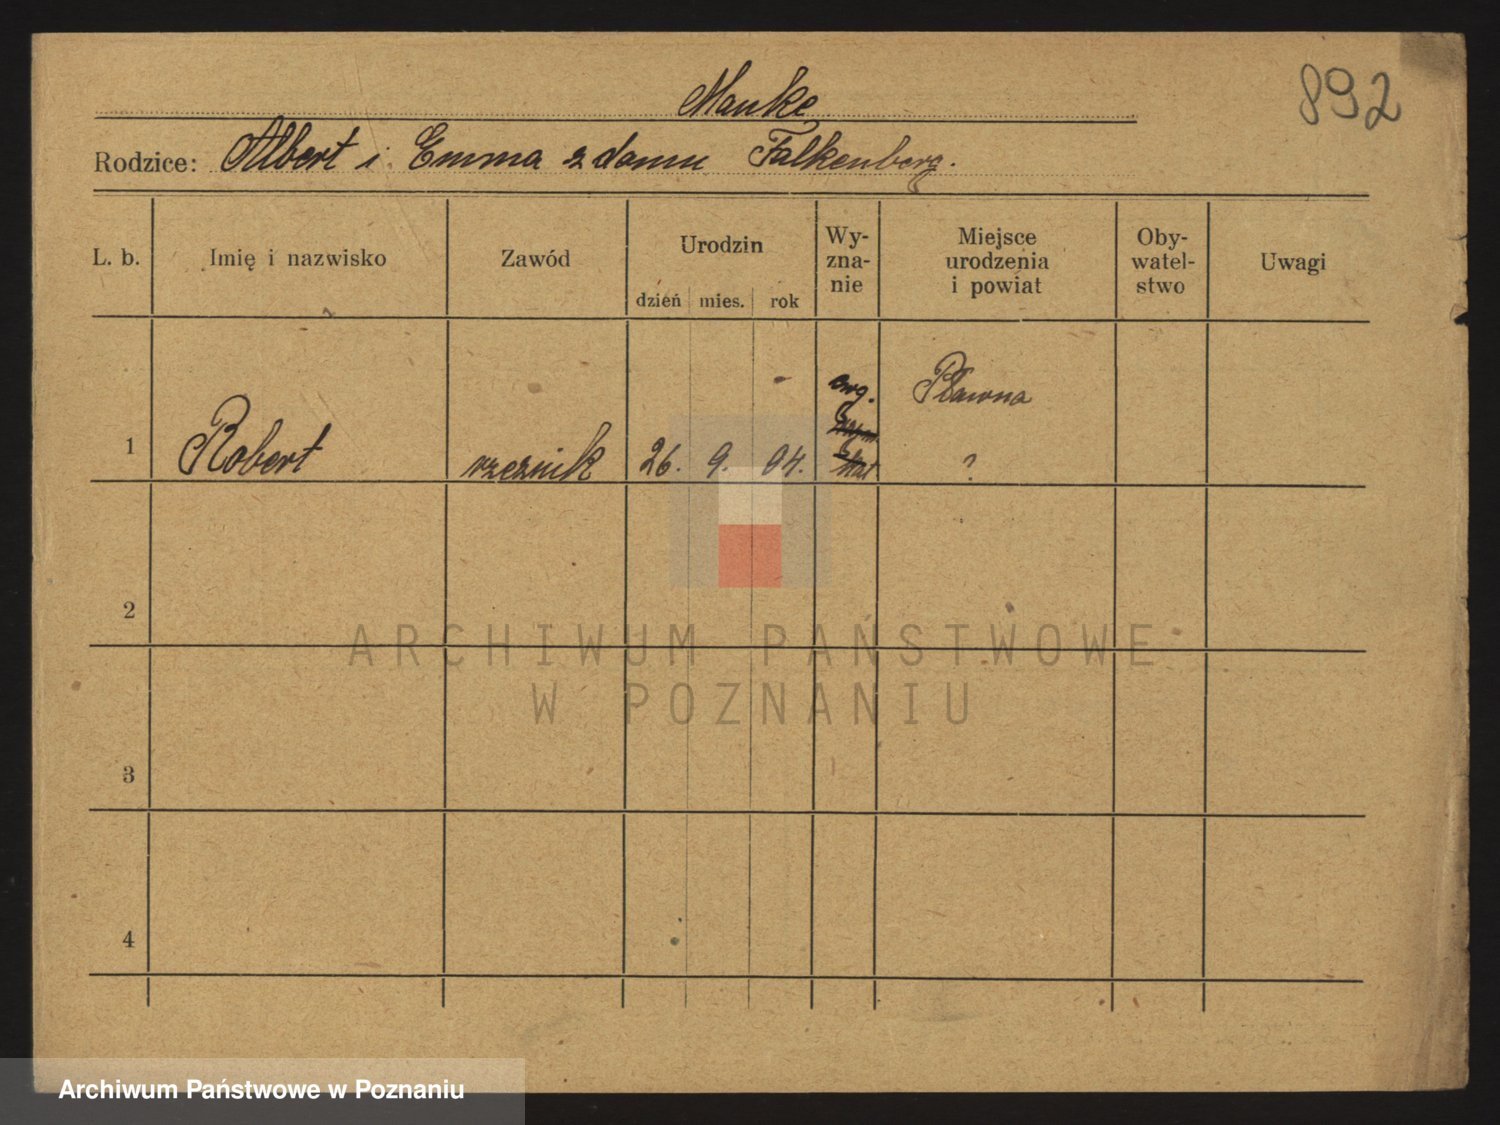 Manke
892
Rodzice: Albert i Emma z domu Falkenberg.
L. b. Imię i nazwisko Zawód Urodzin dzień mies. rok Wy-zna-nie Miejsce urodzenia i powiat Oby-watel-stwo Uwagi
ewg. Pławna
1 Robert rzeźnik 26. 9. 04. ?
2
3
4
ARCHIWUM PAŃSTWOWE
W POZNANIU
Archiwum Państwowe w Poznaniu